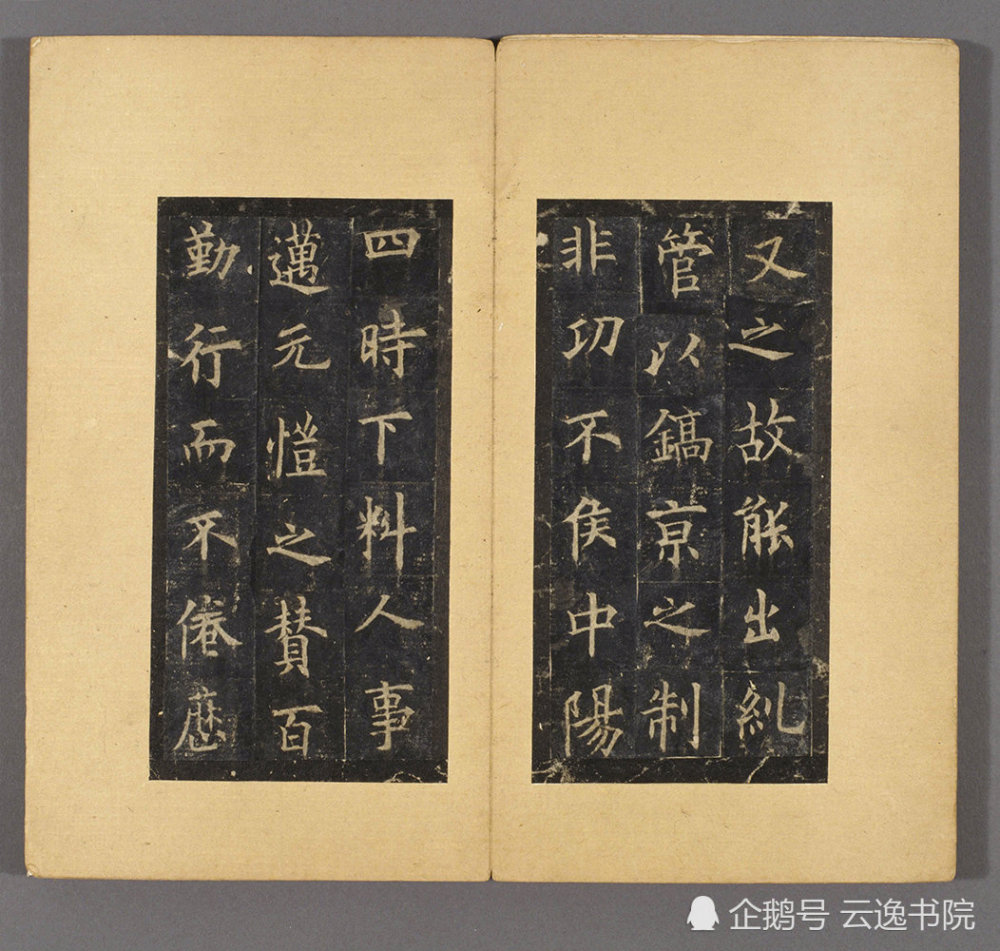 又之故能出糺
管以鎬京之制
非㓛不侯中陽
四時下料人事
邁元愷之賛百
勤行而不倦應
企鹅号 云逸书院